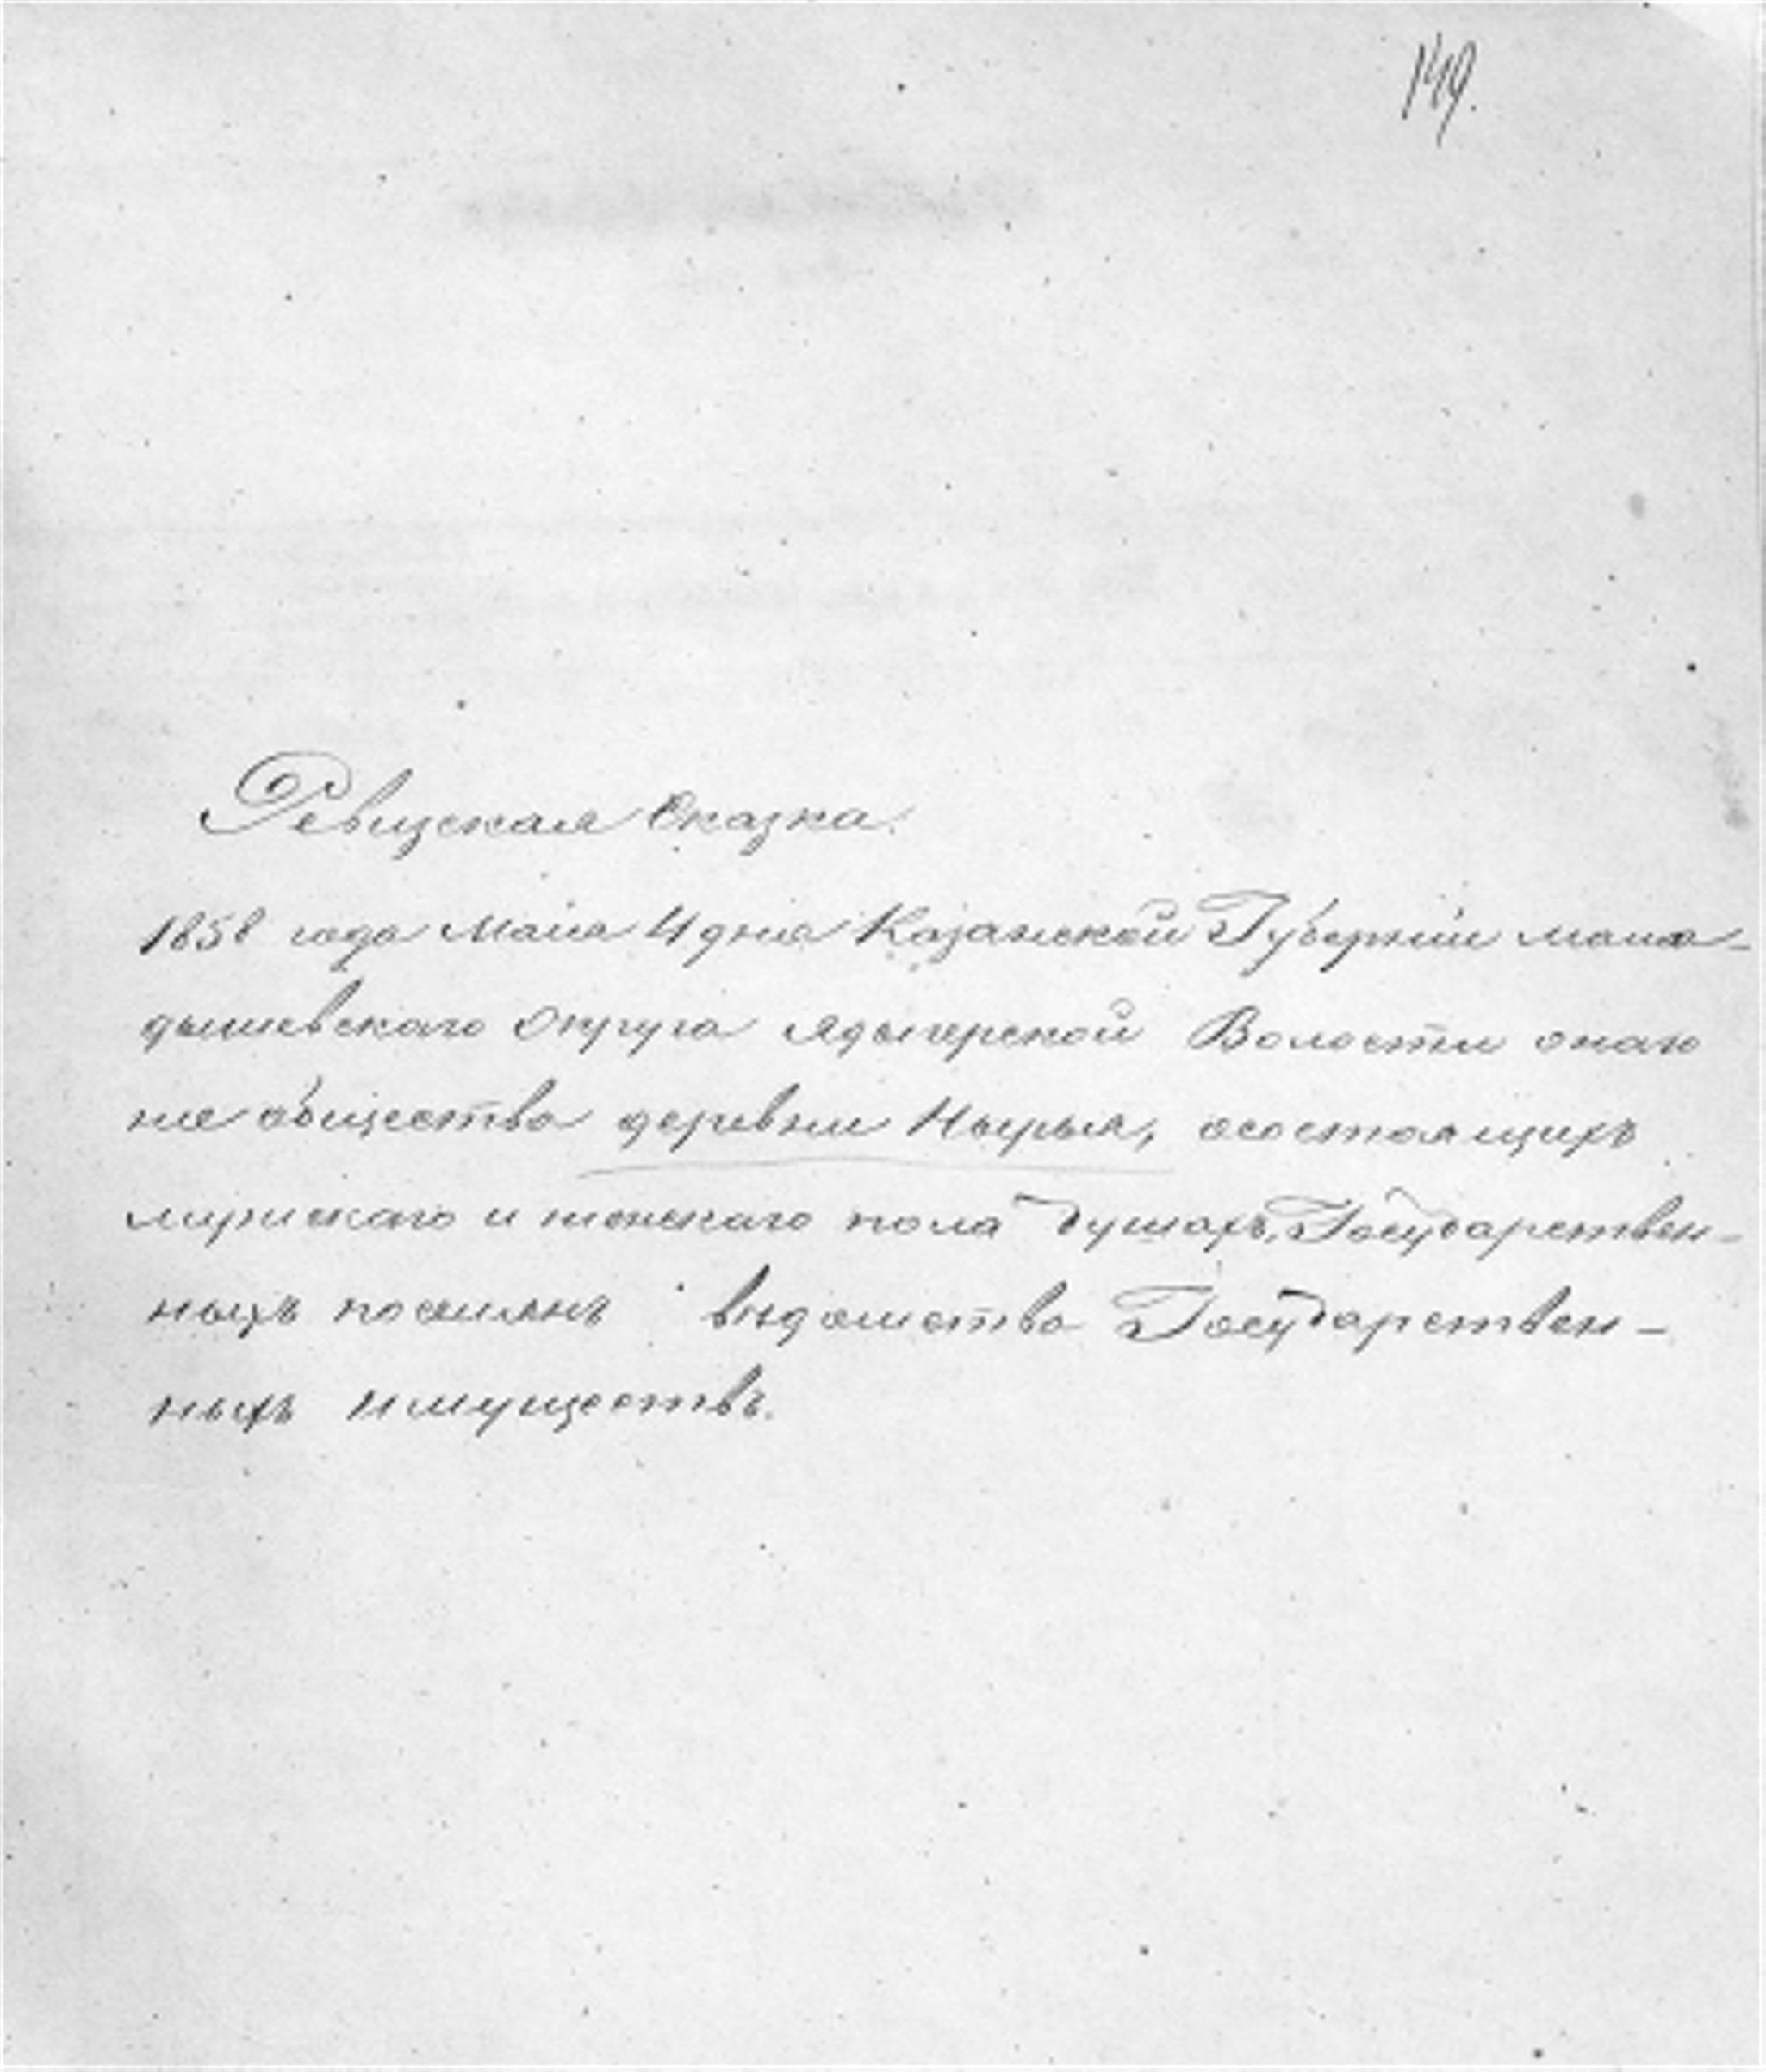 149.
Ревизская Сказка.
1858 года Мая 4 дня Казанской Губернiи мама-
дышевскаго Округа Ядыгерской Волости онаго
же общества деревни Нырья, осостоящихъ
мужескаго и женскаго пола душахъ, Государствен-
ныхъ поселянъ вѣдомства Государствен-
ныхъ имуществъ.